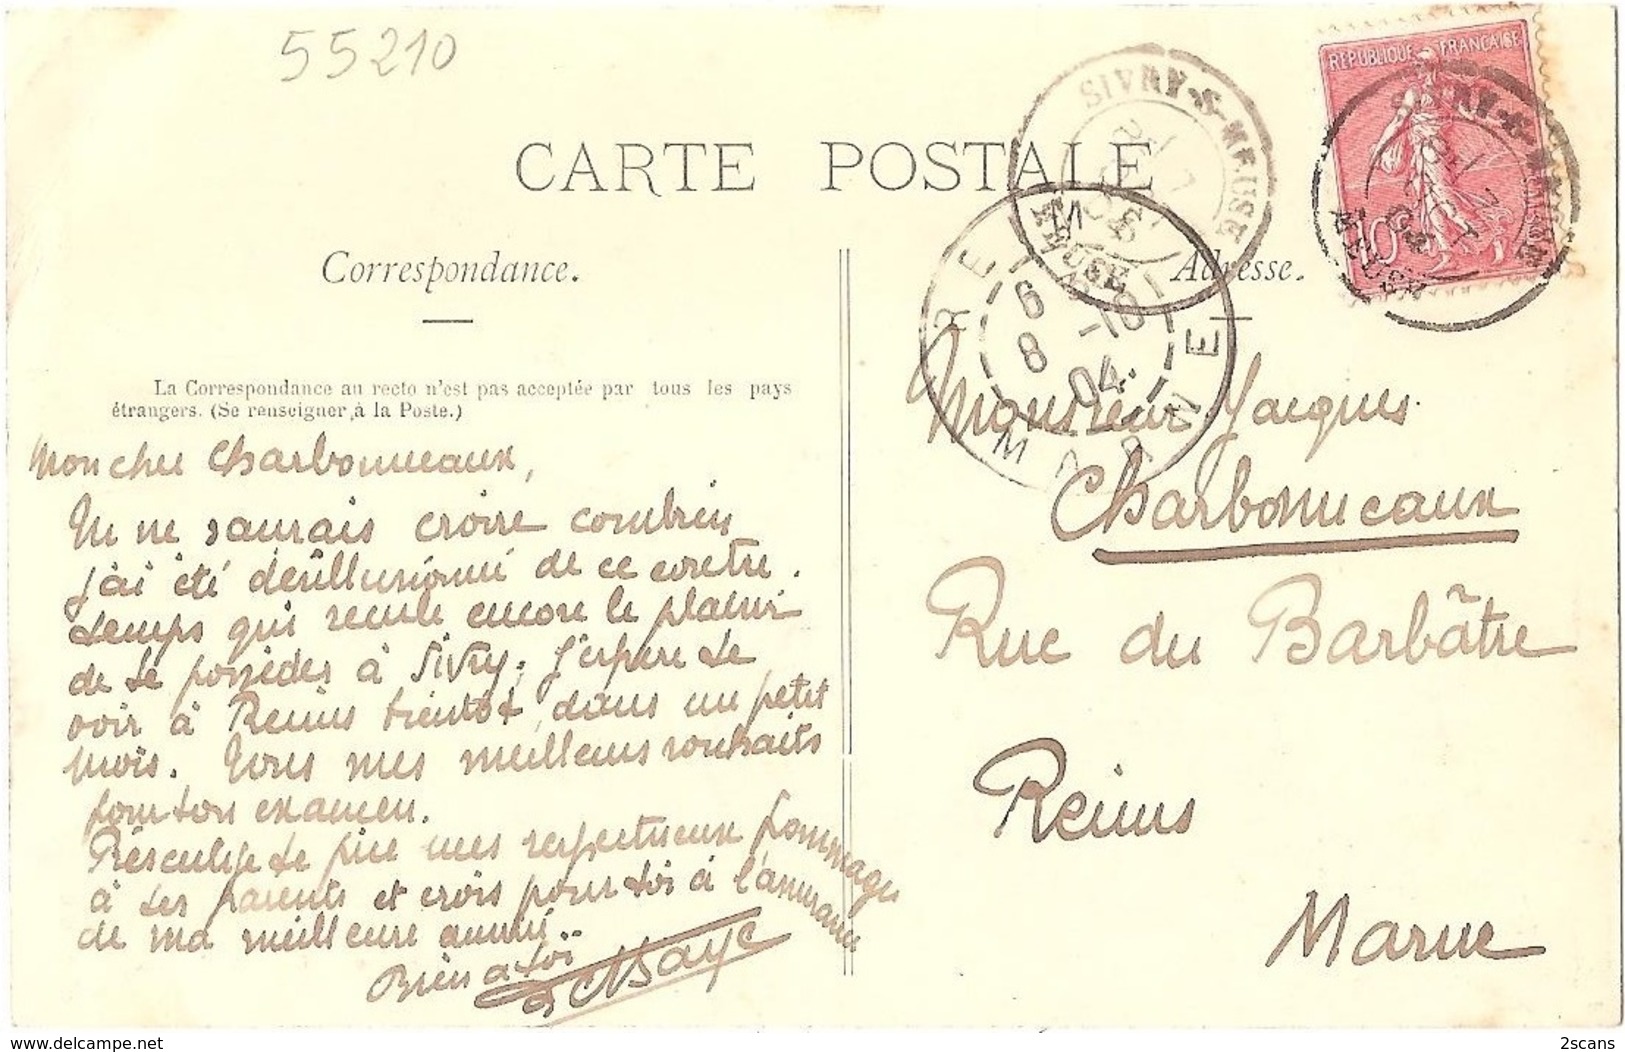 55210
CARTE POSTALE
RÉPUBLIQUE FRANÇAISE
10
SIVRY-S-MEUSE
MEUSE
SIVRY-S-MEUSE
MEUSE
REIMS
6 8-10
8 04
MARNE
Correspondance.
Adresse.
La Correspondance au recto n'est pas acceptée par tous les pays
étrangers. (Se renseigner à la Poste.)
Mon cher Charbonneaux,
Tu ne saurais croire combien
j'ai été désillusionné de ce contre
temps qui recule encore le plaisir
de te posséder à Sivry. J'espère te
voir à Reims bientôt, dans un petit
mois. Tous mes meilleurs souhaits
pour ton examen.
Présente je te prie mes respectueux hommages
à tes parents et crois pour toi à l'assurance
de ma meilleure amitié.
Bien à toi
Monsieur Jacques
Charbonneaux
Rue du Barbâtre
Reims
Marne
2scans
www.delcampe.net